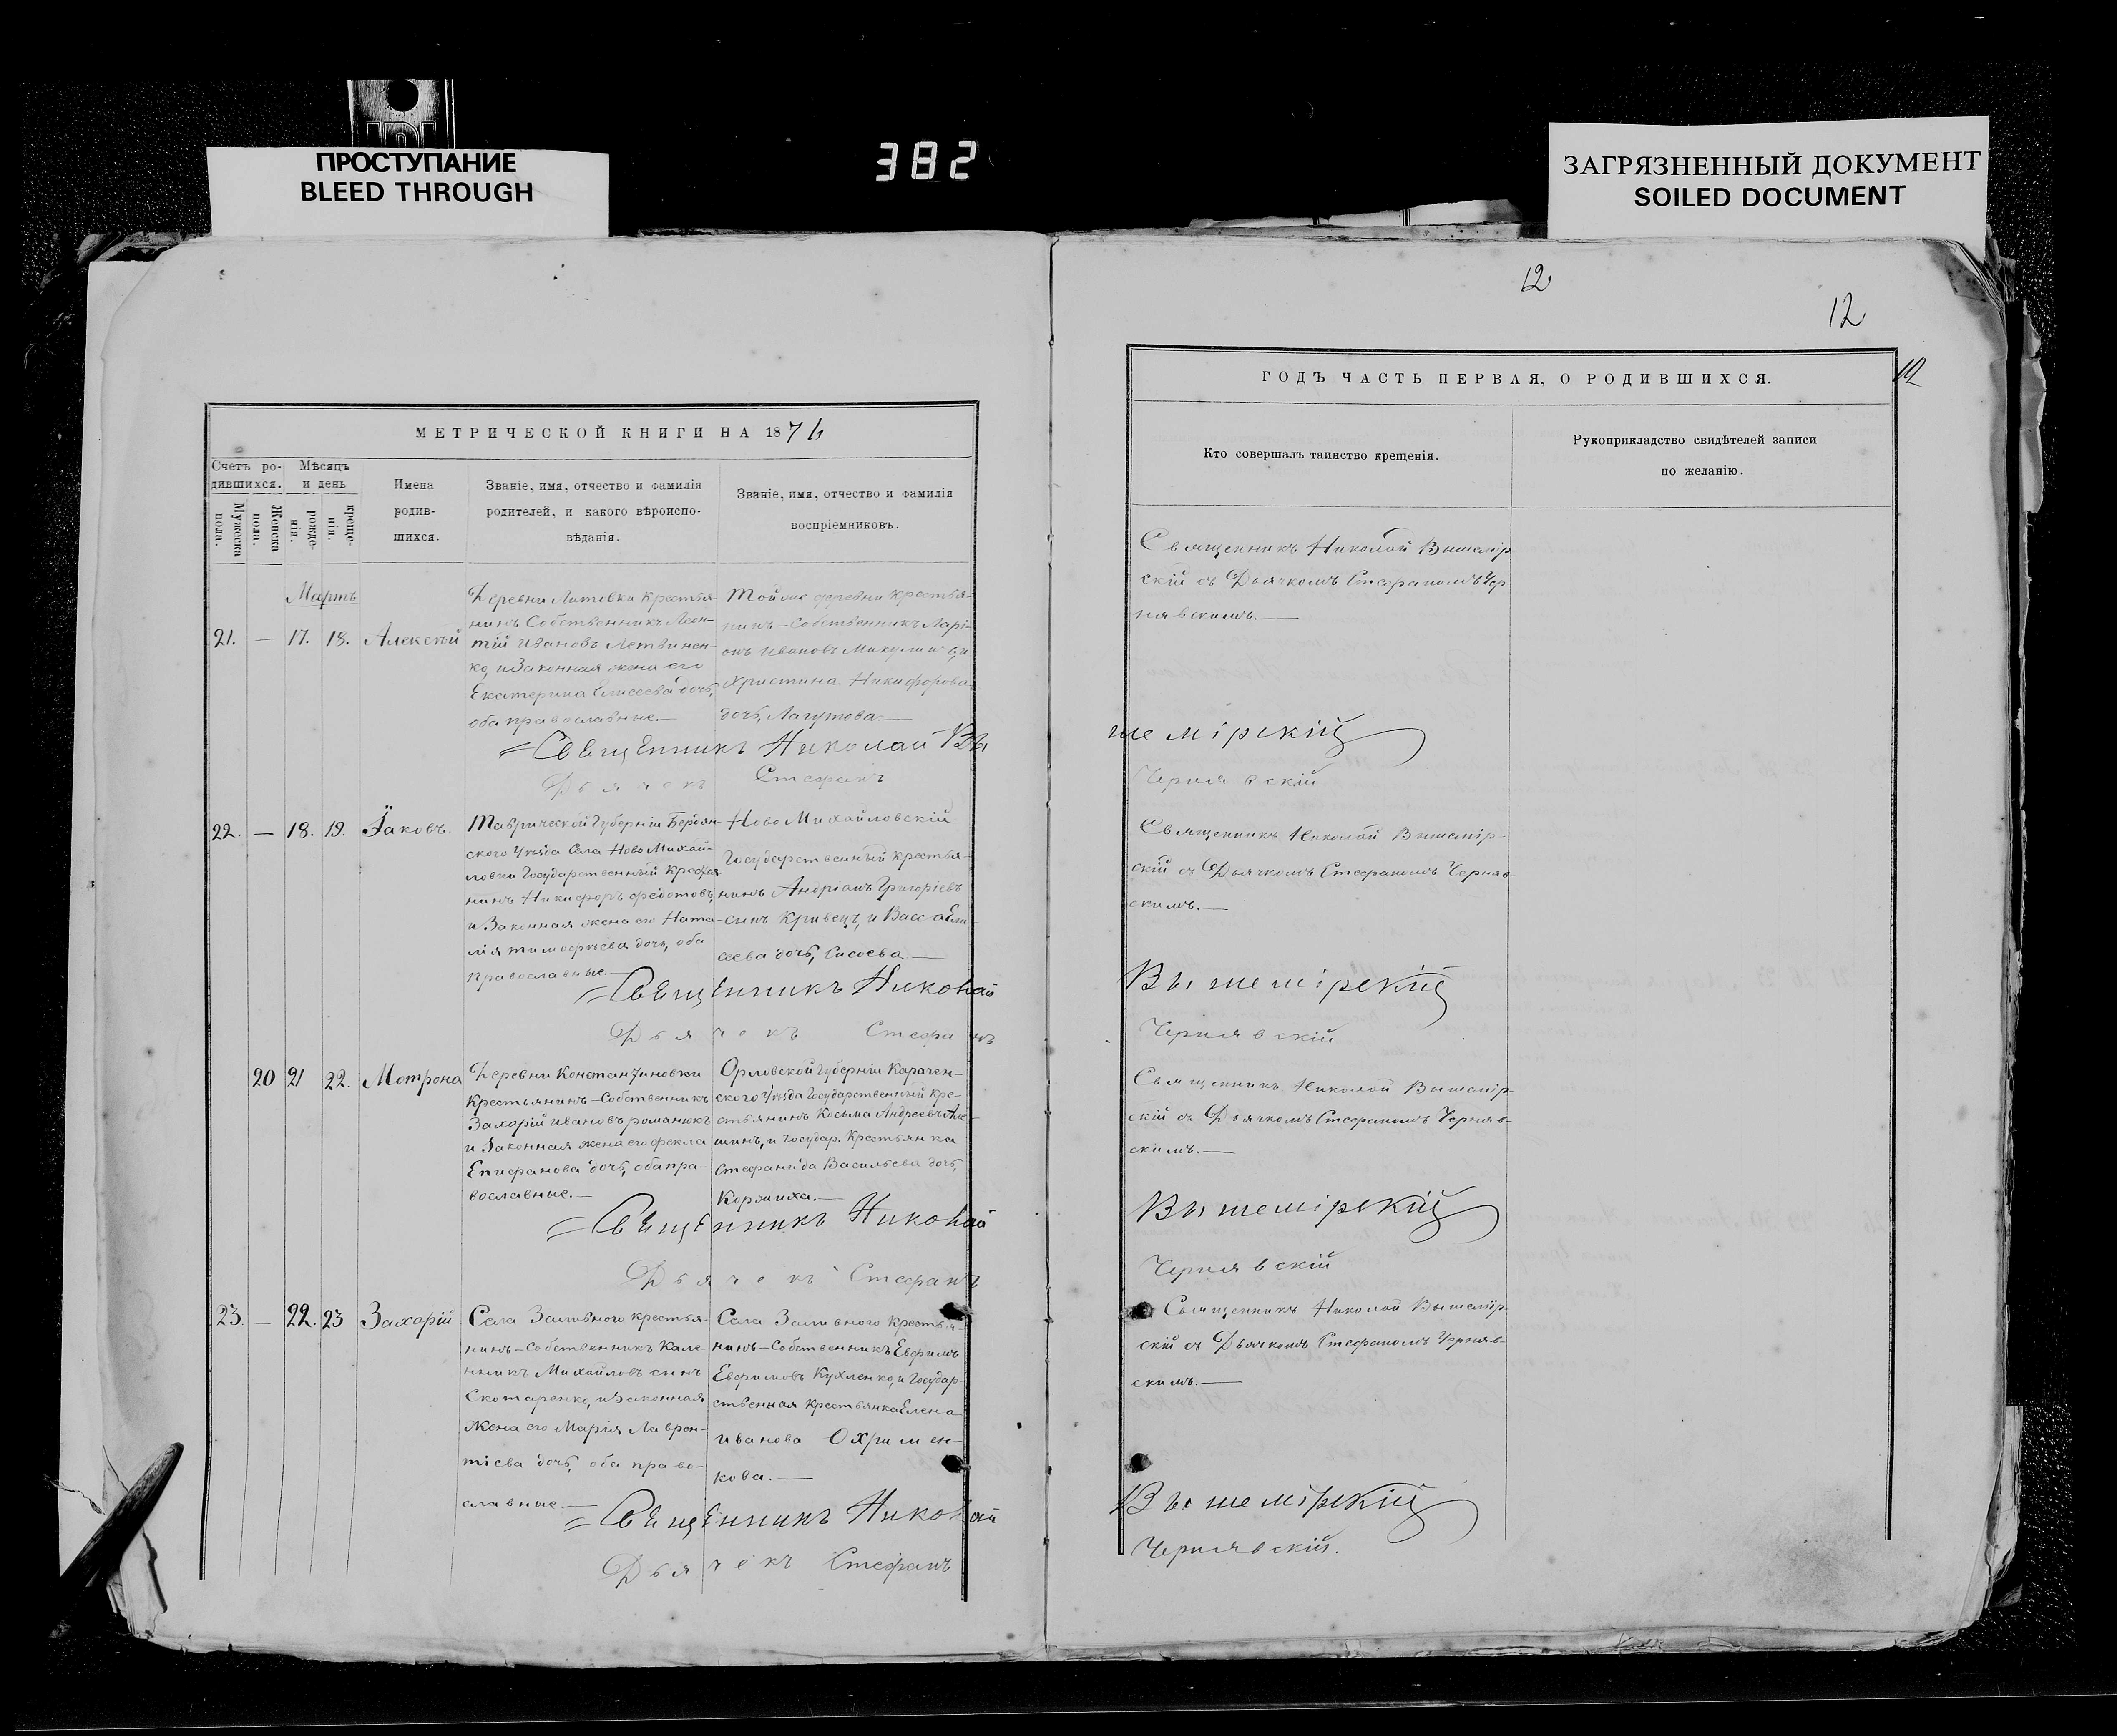 ПРОСТУПАНИЕ
BLEED THROUGH
382
ЗАГРЯЗНЕННЫЙ ДОКУМЕНТ
SOILED DOCUMENT
МЕТРИЧЕСКОЙ КНИГИ НА 1876
Счетъ ро-
дившихся.
Мѣсяцъ
и день
Мужеска
пола.
Женска
пола.
рожде-
нія.
креще-
нія.
Имена
родив-
шихся.
Званіе, имя, отчество и фамилія
родителей, и какого вѣроиспо-
вѣданія.
Званіе, имя, отчество и фамилія
воспріемниковъ.
Мартъ
21. — 17. 18. Алексѣй
Деревни Литовки крестья-
нинъ Собственникъ Леон-
тій Ивановъ Летвинен-
ко, и Законная жена его
Екатерина Елисеева дочь,
оба православные.—
Той же деревни крестья-
нинъ-Собственникъ Ларі-
онъ Ивановъ
Христина Никифорова
дочь, Лагутева.—
Священникъ Николай Вы
Дьячекъ Стефанъ
22. — 18. 19. Іаковъ.
Таврической Губерніи Бердян-
ского Уѣзда Села Ново Михай-
ловки Государственный Крестья-
нинъ Никифоръ Федотовъ,
и Законная жена его Ната-
лія Тимофѣева дочь, оба
православные.—
Ново Михайловскій
Государственный крестья-
нинъ Андріанъ Григоріевъ
сынъ Кривецъ, и Васса Ели-
сеева дочь, Сисоева.—
Священникъ Николай
Дьячекъ Стефанъ
20 21 22. Мотрона
Деревни Константиновки
Крестьянинъ-Собственникъ
Захарій Ивановъ Романюкъ
и Законная жена его Фекла
Епифанова дочь, оба пра-
вославные.—
Орловской Губерніи Карачен-
ского Уѣзда Государственный Кре-
стьянинъ Косьма Андреевъ Але-
шинъ, и Государ. Крестьянка
Стефанида Васильева дочь,
Священникъ Николай
Дьячекъ Стефанъ
23. — 22. 23 Захарій
Села Заливного крестья-
нинъ-Собственникъ Кале-
никъ Михайловъ сынъ
Скотаренко, и Законная
Жена его Марія Лаврен-
тіева дочь, оба право-
славные.—
Села Заливного Крестья-
нинъ-Собственникъ Евфимъ
Евфимовъ Кухленко, и Государ-
ственная Крестьянка Елена
Иванова Охримен-
кова.—
Священникъ Николай
Дьячекъ Стефанъ
12
12
12
ГОДЪ ЧАСТЬ ПЕРВАЯ, О РОДИВШИХСЯ.
Кто совершалъ таинство крещенія.
Рукоприкладство свидѣтелей записи
по желанію.
Священникъ Николай Вышемір-
скій съ Дьячкомъ Стефаномъ Чер-
нявскимъ.—
шемірскій
Чернявскій
Священникъ Николай Вышемір-
скій съ Дьячкомъ Стефаномъ Черняв-
скимъ.—
Вышемірскій
Чернявскій
Священникъ Николай Вышемір-
скій съ Дьячкомъ Стефаномъ Черняв-
скимъ.—
Вышемірскій
Чернявскій
Священникъ Николай Вышемір-
скій съ Дьячкомъ Стефаномъ Черняв-
скимъ.—
Вышемірскій
Чернявскій.